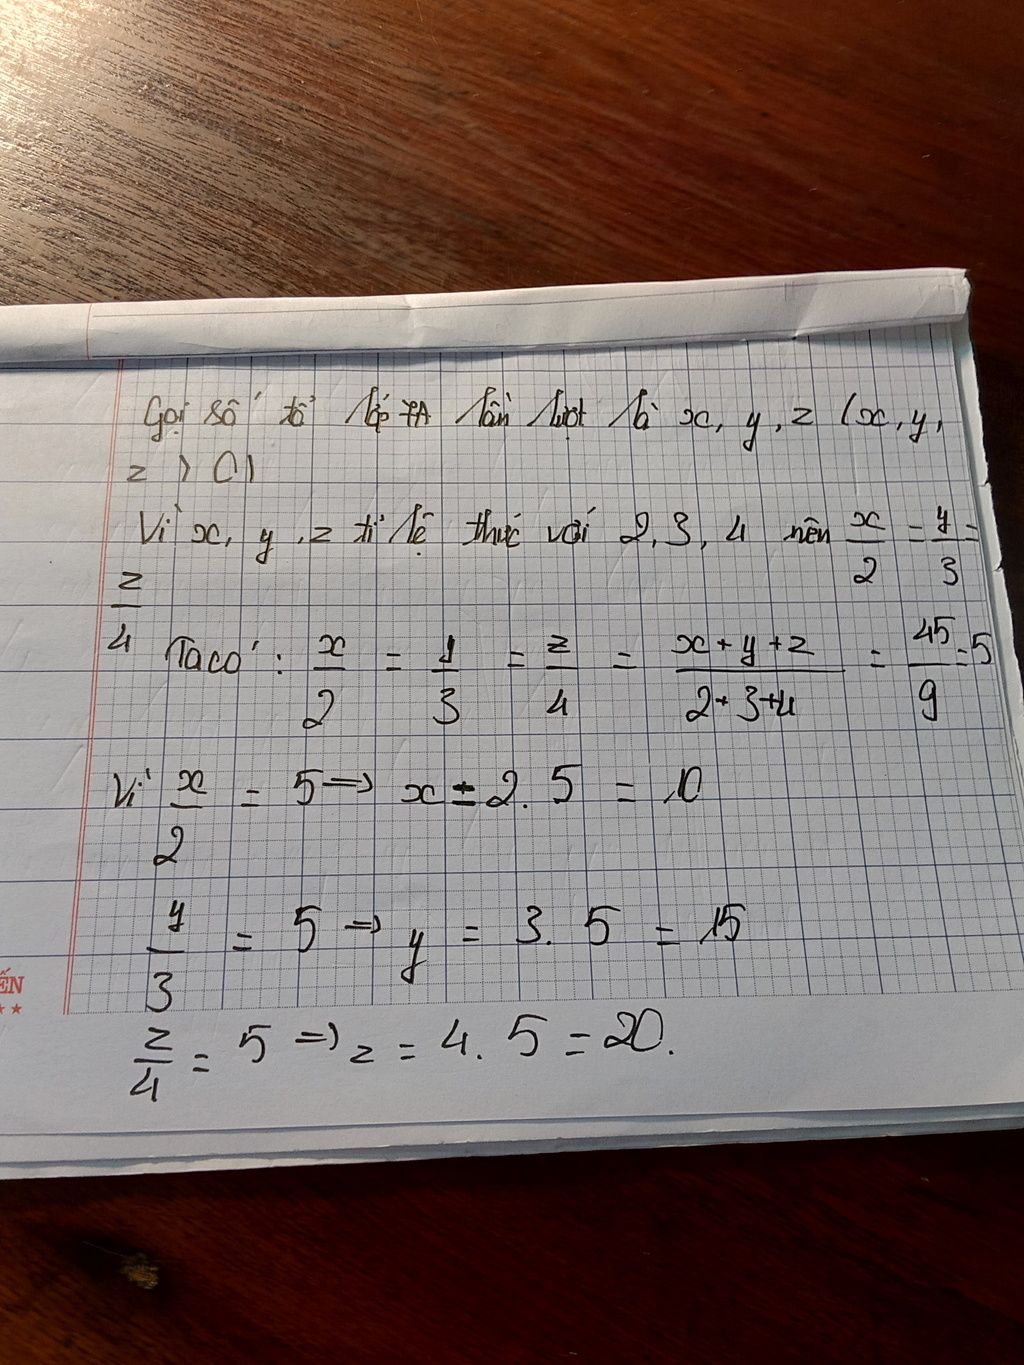 Gọi số tổ lớp 7A lần lượt là x, y, z (x, y,
z > 0)
Vì x, y, z tỉ lệ thức với 2, 3, 4 nên x/2 = y/3 =
z/4
Ta có: x/2 = y/3 = z/4 = x+y+z/2+3+4 = 45/9 = 5
Vì x/2 = 5 => x = 2. 5 = 10
y/3 = 5 => y = 3. 5 = 15
ẾN
★★
z/4 = 5 => z = 4. 5 = 20.